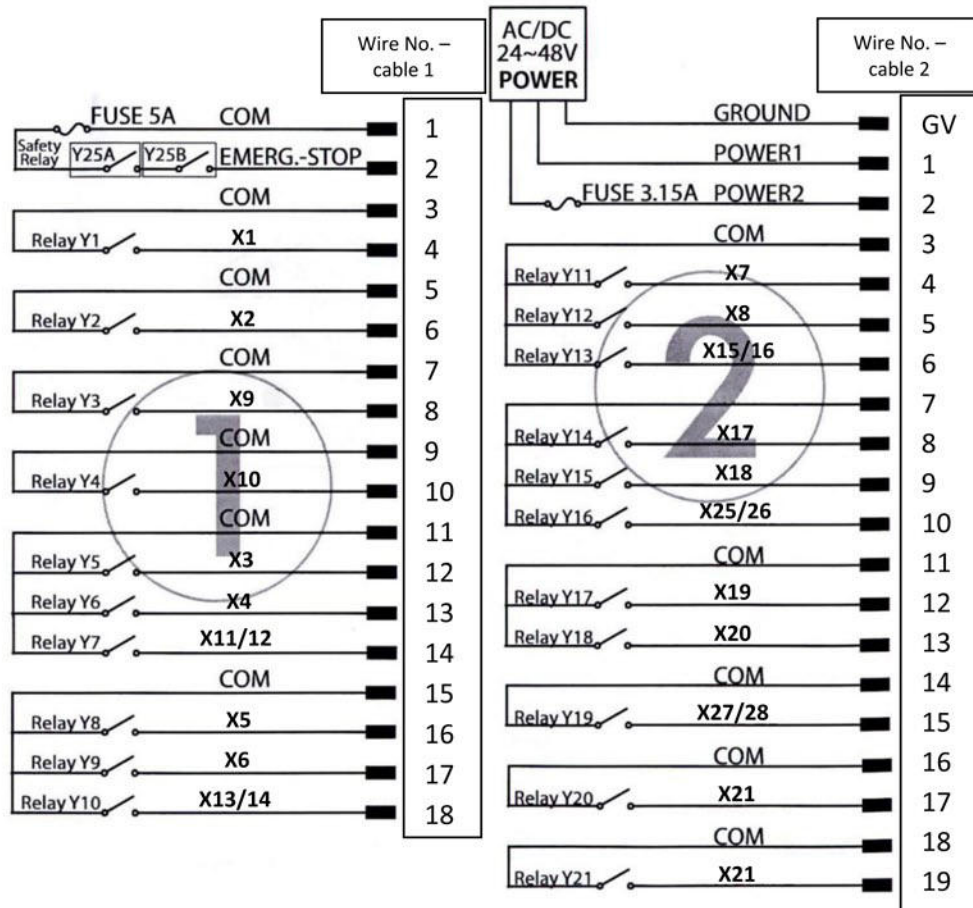 Wire No. –
cable 1
FUSE 5A COM 1
Safety
Relay
Y25A Y25B EMERG.-STOP 2
COM 3
Relay Y1 X1 4
COM 5
Relay Y2 X2 6
COM 7
Relay Y3 X9 8
COM 9
Relay Y4 X10 10
COM 11
Relay Y5 X3 12
Relay Y6 X4 13
Relay Y7 X11/12 14
COM 15
Relay Y8 X5 16
Relay Y9 X6 17
Relay Y10 X13/14 18
1
AC/DC
24~48V
POWER
Wire No. –
cable 2
GROUND GV
POWER1 1
FUSE 3.15A POWER2 2
COM 3
Relay Y11 X7 4
Relay Y12 X8 5
Relay Y13 X15/16 6
7
Relay Y14 X17 8
Relay Y15 X18 9
Relay Y16 X25/26 10
COM 11
Relay Y17 X19 12
Relay Y18 X20 13
COM 14
Relay Y19 X27/28 15
COM 16
Relay Y20 X21 17
COM 18
Relay Y21 X21 19
2